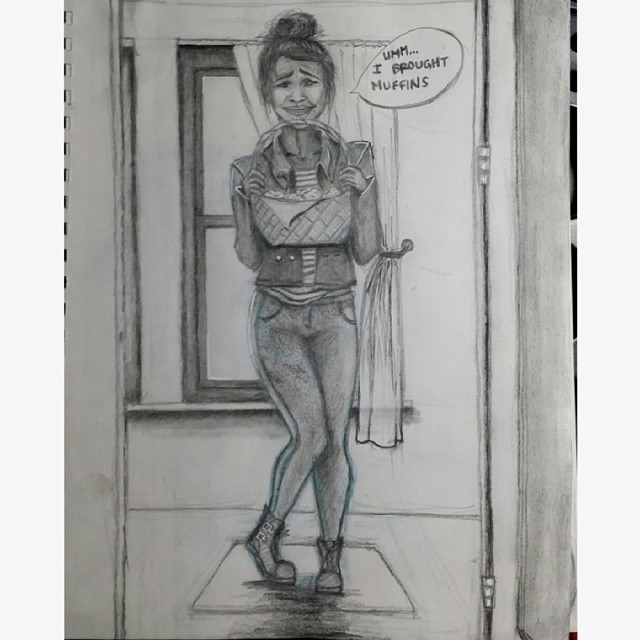 UMM...
I BROUGHT
MUFFINS